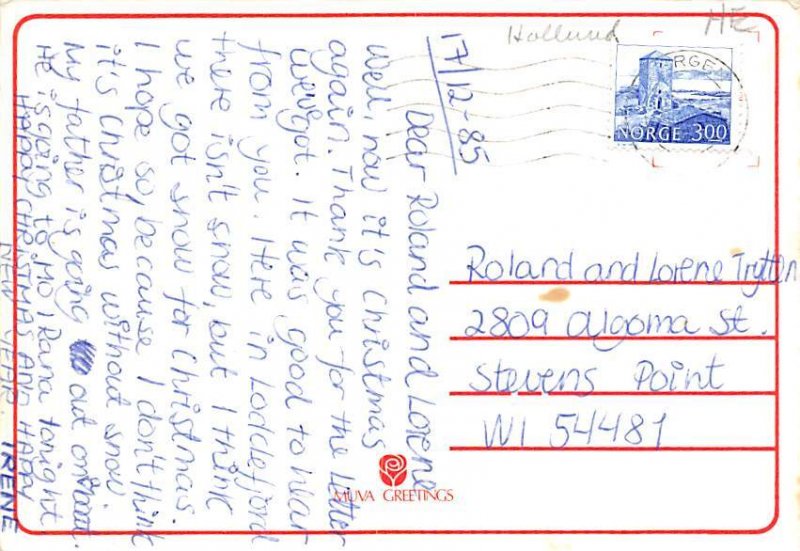 17/12-85
Dear Roland and Lorene
Well, now it's Christmas
again. Thank you for the letter
we've got. It was good to hear
from you. Here in Loddefjord
there isn't snow, but I think
we got snow for Christmas.
I hope so, because I don't think
it's Christmas without snow
My father is going out on boat.
He is going to Mo i Rana tonight
HAPPY CHRISTMAS AND HAPPY
NEW YEAR. IRENE
Hollund
HE
RGE
NORGE 300
Roland and Lorene Trytten
2809 Algoma St.
Stevens Point
WI 54481
MUVA GREETINGS